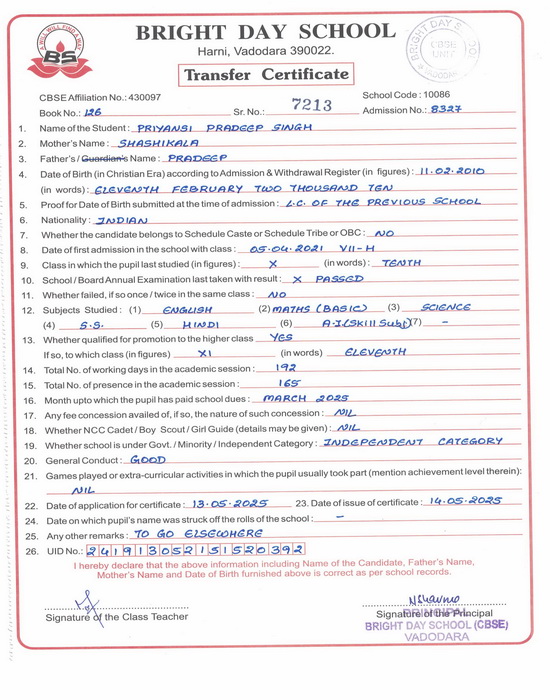 A WILL WILL FIND A WAY
BS
BRIGHT DAY SCHOOL
Harni, Vadodara 390022.
BRIGHT DAY SCHOOL
CBSE
UNIT
VADODARA
Transfer Certificate
CBSE Affiliation No.: 430097
School Code : 10086
Book No.: 126 Sr. No.: 7213 Admission No.: 8327
1. Name of the Student : PRIYANSI PRADEEP SINGH
2. Mother's Name : SHASHIKALA
3. Father's / Guardian's Name : PRADEEP
4. Date of Birth (in Christian Era) according to Admission & Withdrawal Register (in figures) : 11.02.2010
(in words) : ELEVENTH FEBRUARY TWO THOUSAND TEN
5. Proof for Date of Birth submitted at the time of admission : L.C. OF THE PREVIOUS SCHOOL
6. Nationality : INDIAN
7. Whether the candidate belongs to Schedule Caste or Schedule Tribe or OBC : NO
8. Date of first admission in the school with class : 05.04.2021 VII-H
9. Class in which the pupil last studied (in figures) : X (in words) : TENTH
10. School / Board Annual Examination last taken with result : X PASSED
11. Whether failed, if so once / twice in the same class : NO
12. Subjects Studied : (1) ENGLISH (2) MATHS (BASIC) (3) SCIENCE
(4) S.S. (5) HINDI (6) A.I (Skill Subj) (7) -
13. Whether qualified for promotion to the higher class YES
If so, to which class (in figures) XI (in words) ELEVENTH
14. Total No. of working days in the academic session : 192
15. Total No. of presence in the academic session : 165
16. Month upto which the pupil has paid school dues : MARCH 2025
17. Any fee concession availed of, if so, the nature of such concession : NIL
18. Whether NCC Cadet / Boy Scout / Girl Guide (details may be given) : NIL
19. Whether school is under Govt. / Minority / Independent Category : INDEPENDENT CATEGORY
20. General Conduct : GOOD
21. Games played or extra-curricular activities in which the pupil usually took part (mention achievement level therein) :
NIL
22. Date of application for certificate : 13.05.2025 23. Date of issue of certificate : 14.05.2025
24. Date on which pupil's name was struck off the rolls of the school : -
25. Any other remarks : TO GO ELSEWHERE
26. UID No.: 241913052151520392
I hereby declare that the above information including Name of the Candidate, Father's Name,
Mother's Name and Date of Birth furnished above is correct as per school records.
Signature of the Class Teacher
Signature of the Principal
PRINCIPAL
BRIGHT DAY SCHOOL (CBSE)
VADODARA